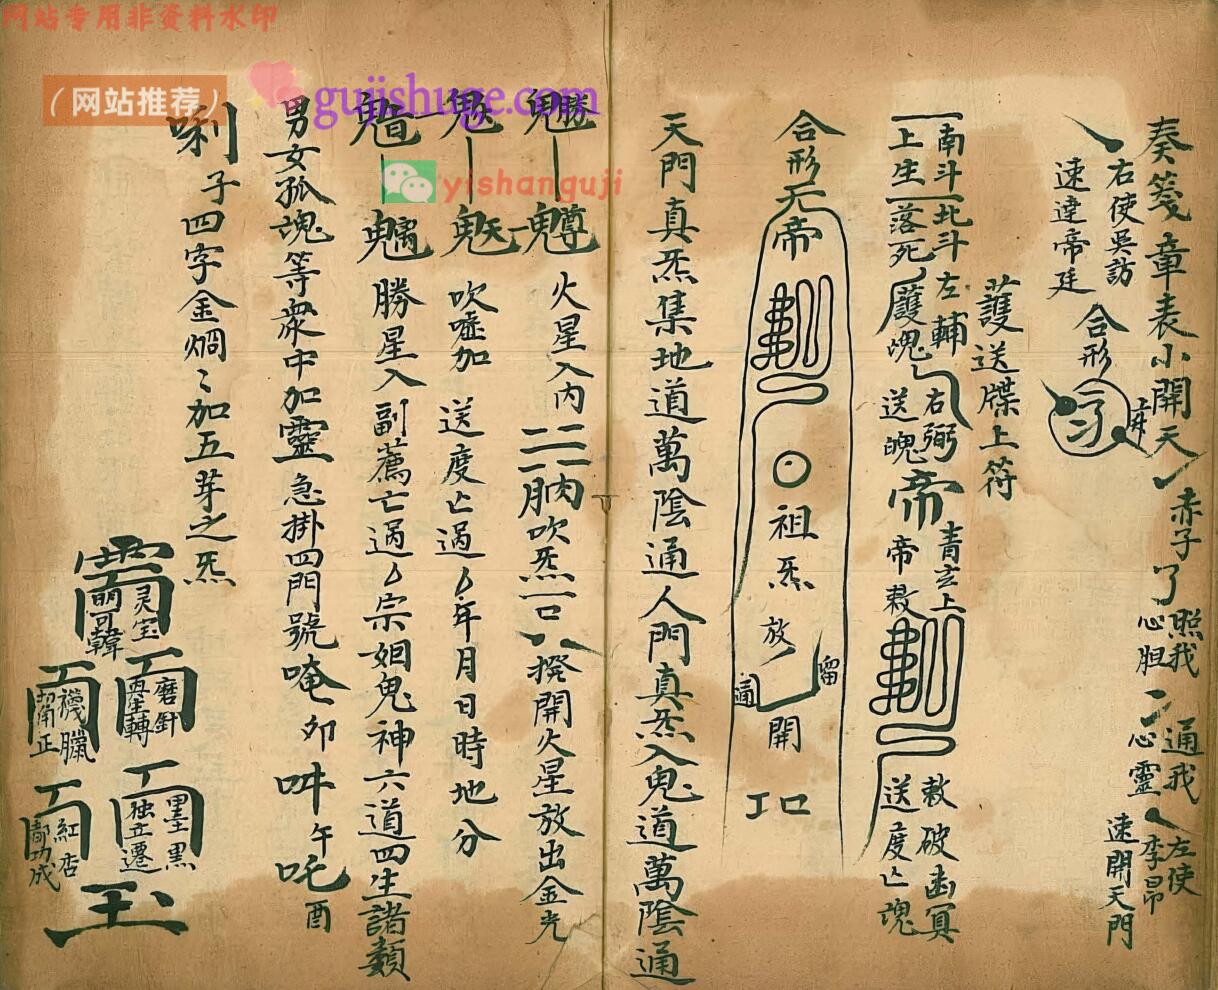 网站专用非资料水印
（网站推荐）
gujishuge.com
yishanguji
奏箋章表小開天
赤子
了
照我
心胆
通我
心靈
左使
李昴
速開天門
右使吳訪
速達帝廷
合形
護送牒上符
南斗北斗左輔右弼
上生落死護魂送魄
帝
青玄上
帝敕
敕破幽冥
送度亡魂
合形
帝
祖炁放
開
天門真炁集地道萬陰通人門真炁入鬼道萬陰通
火星入内
吹炁一口
揆開火星放出金光
吹噓加
送度亡過
年月日時地分
勝星入副薦亡過
宗姻鬼神六道四生諸類
男女孤魂等衆中加靈急掛四門號唵卯吽午吒酉
唎子四字金烱々加五芽之炁
灵宝
磨針
墨黑
独立遷
紅店
都功成
玉